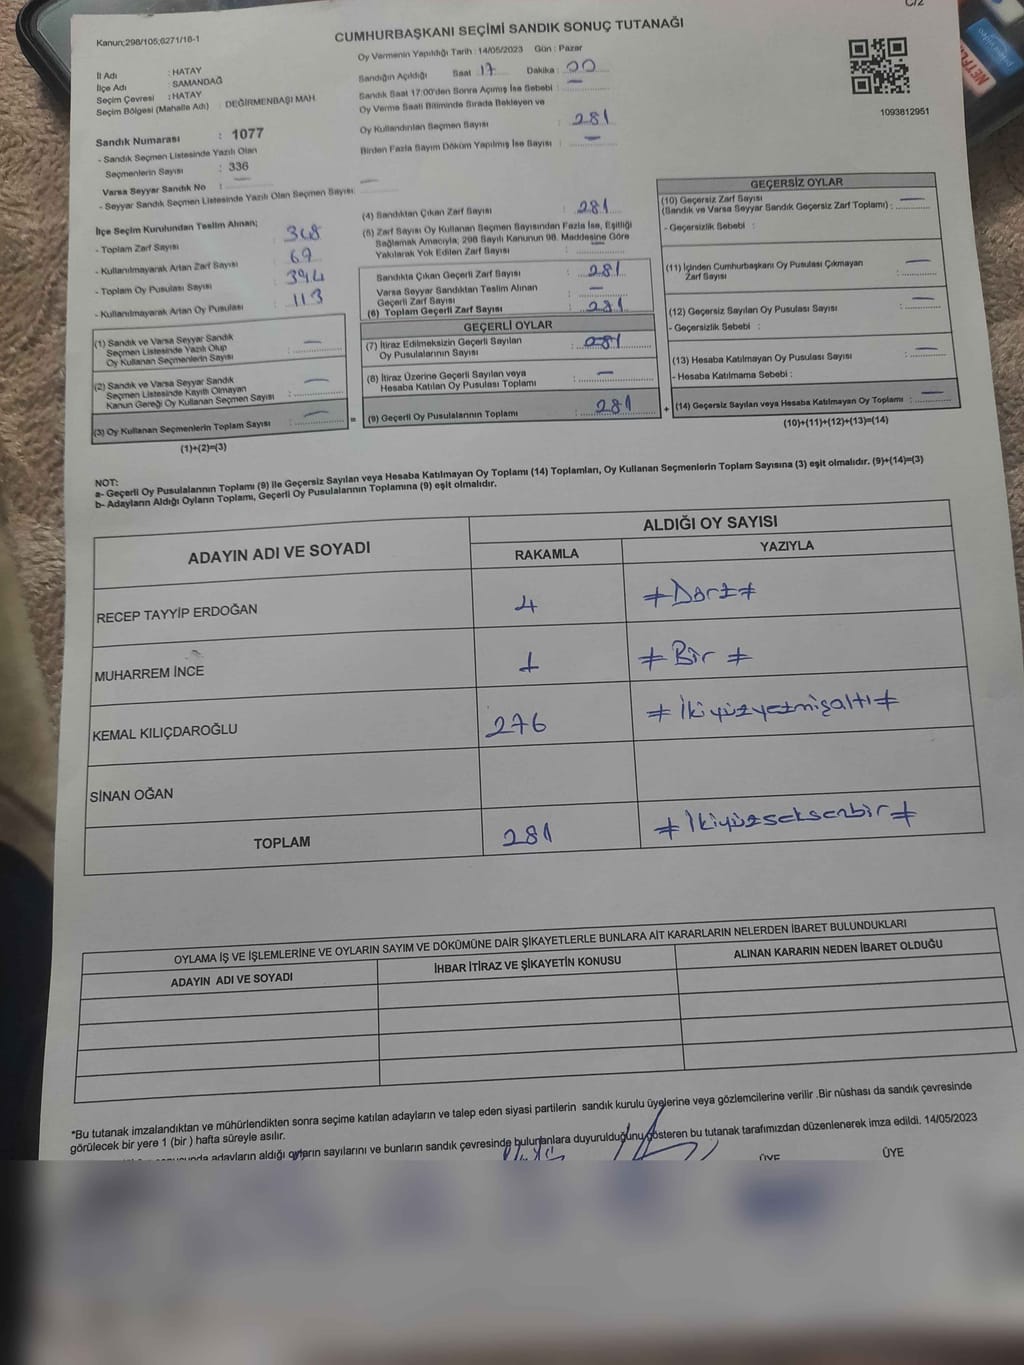 C/2
Kanun;298/105;6271/18-1
CUMHURBAŞKANI SEÇİMİ SANDIK SONUÇ TUTANAĞI
İl Adı : HATAY
İlçe Adı : SAMANDAĞ
Seçim Çevresi : HATAY
Seçim Bölgesi (Mahalle Adı) : DEĞİRMENBAŞI MAH.
Sandık Numarası : 1077
- Sandık Seçmen Listesinde Yazılı Olan
Seçmenlerin Sayısı : 336
Varsa Seyyar Sandık No : —
- Seyyar Sandık Seçmen Listesinde Yazılı Olan Seçmen Sayısı: —
Oy Vermenin Yapıldığı Tarih : 14/05/2023 Gün : Pazar
Sandığın Açıldığı Saat 17 Dakika : 00
Sandık Saat 17:00'den Sonra Açımış İse Sebebi : —
Oy Verme Saati Bitiminde Sırada Bekleyen ve
Oy Kullandırılan Seçmen Sayısı : 281
Birden Fazla Sayım Döküm Yapılmış İse Sayısı : —
1093812951
NETFLIX
İlçe Seçim Kurulundan Teslim Alınan;
- Toplam Zarf Sayısı : 348
- Kullanılmayarak Artan Zarf Sayısı : 67
- Toplam Oy Pusulası Sayısı : 394
- Kullanılmayarak Artan Oy Pusulası : 113
(1) Sandık ve Varsa Seyyar Sandık
Seçmen Listesinde Yazılı Olup
Oy Kullanan Seçmenlerin Sayısı : —
(2) Sandık ve Varsa Seyyar Sandık
Seçmen Listesinde Kayıtlı Olmayan
Kanun Gereği Oy Kullanan Seçmen Sayısı : —
(3) Oy Kullanan Seçmenlerin Toplam Sayısı : —
(1)+(2)=(3)
(4) Sandıktan Çıkan Zarf Sayısı : 281
(5) Zarf Sayısı Oy Kullanan Seçmen Sayısından Fazla İse, Eşitliği
Sağlamak Amacıyla, 298 Sayılı Kanunun 98. Maddesine Göre
Yakılarak Yok Edilen Zarf Sayısı :
Sandıkta Çıkan Geçerli Zarf Sayısı : 281
Varsa Seyyar Sandıktan Teslim Alınan
Geçerli Zarf Sayısı : —
(6) Toplam Geçerli Zarf Sayısı : 281
GEÇERLİ OYLAR
(7) İtiraz Edilmeksizin Geçerli Sayılan
Oy Pusulalarının Sayısı : 281
(8) İtiraz Üzerine Geçerli Sayılan veya
Hesaba Katılan Oy Pusulası Toplamı : —
= (9) Geçerli Oy Pusulalarının Toplamı : 281
GEÇERSİZ OYLAR
(10) Geçersiz Zarf Sayısı
(Sandık ve Varsa Seyyar Sandık Geçersiz Zarf Toplamı) : —
- Geçersizlik Sebebi :
(11) İçinden Cumhurbaşkanı Oy Pusulası Çıkmayan
Zarf Sayısı : —
(12) Geçersiz Sayılan Oy Pusulası Sayısı : —
- Geçersizlik Sebebi :
(13) Hesaba Katılmayan Oy Pusulası Sayısı : —
- Hesaba Katılmama Sebebi :
+ (14) Geçersiz Sayılan veya Hesaba Katılmayan Oy Toplamı : —
(10)+(11)+(12)+(13)=(14)
NOT:
a- Geçerli Oy Pusulalarının Toplamı (9) ile Geçersiz Sayılan veya Hesaba Katılmayan Oy Toplamı (14) Toplamları, Oy Kullanan Seçmenlerin Toplam Sayısına (3) eşit olmalıdır. (9)+(14)=(3)
b- Adayların Aldığı Oyların Toplamı, Geçerli Oy Pusulalarının Toplamına (9) eşit olmalıdır.
ADAYIN ADI VE SOYADI
ALDIĞI OY SAYISI
RAKAMLA YAZIYLA
RECEP TAYYİP ERDOĞAN 4 ≠Dört≠
MUHARREM İNCE 1 ≠ Bir ≠
KEMAL KILIÇDAROĞLU 276 ≠ İkiyüzyetmişaltı≠
SİNAN OĞAN
TOPLAM 281 ≠İkiyüzseksenbir≠
OYLAMA İŞ VE İŞLEMLERİNE VE OYLARIN SAYIM VE DÖKÜMÜNE DAİR ŞİKAYETLERLE BUNLARA AİT KARARLARIN NELERDEN İBARET BULUNDUKLARI
ADAYIN ADI VE SOYADI İHBAR İTİRAZ VE ŞİKAYETİN KONUSU ALINAN KARARIN NEDEN İBARET OLDUĞU
*Bu tutanak imzalandıktan ve mühürlendikten sonra seçime katılan adayların ve talep eden siyasi partilerin sandık kurulu üyelerine veya gözlemcilerine verilir .Bir nüshası da sandık çevresinde
görülecek bir yere 1 (bir ) hafta süreyle asılır.
adayların aldığı oyların sayılarını ve bunların sandık çevresinde bulunanlara duyurulduğunu gösteren bu tutanak tarafımızdan düzenlenerek imza edildi. 14/05/2023
ÜYE ÜYE